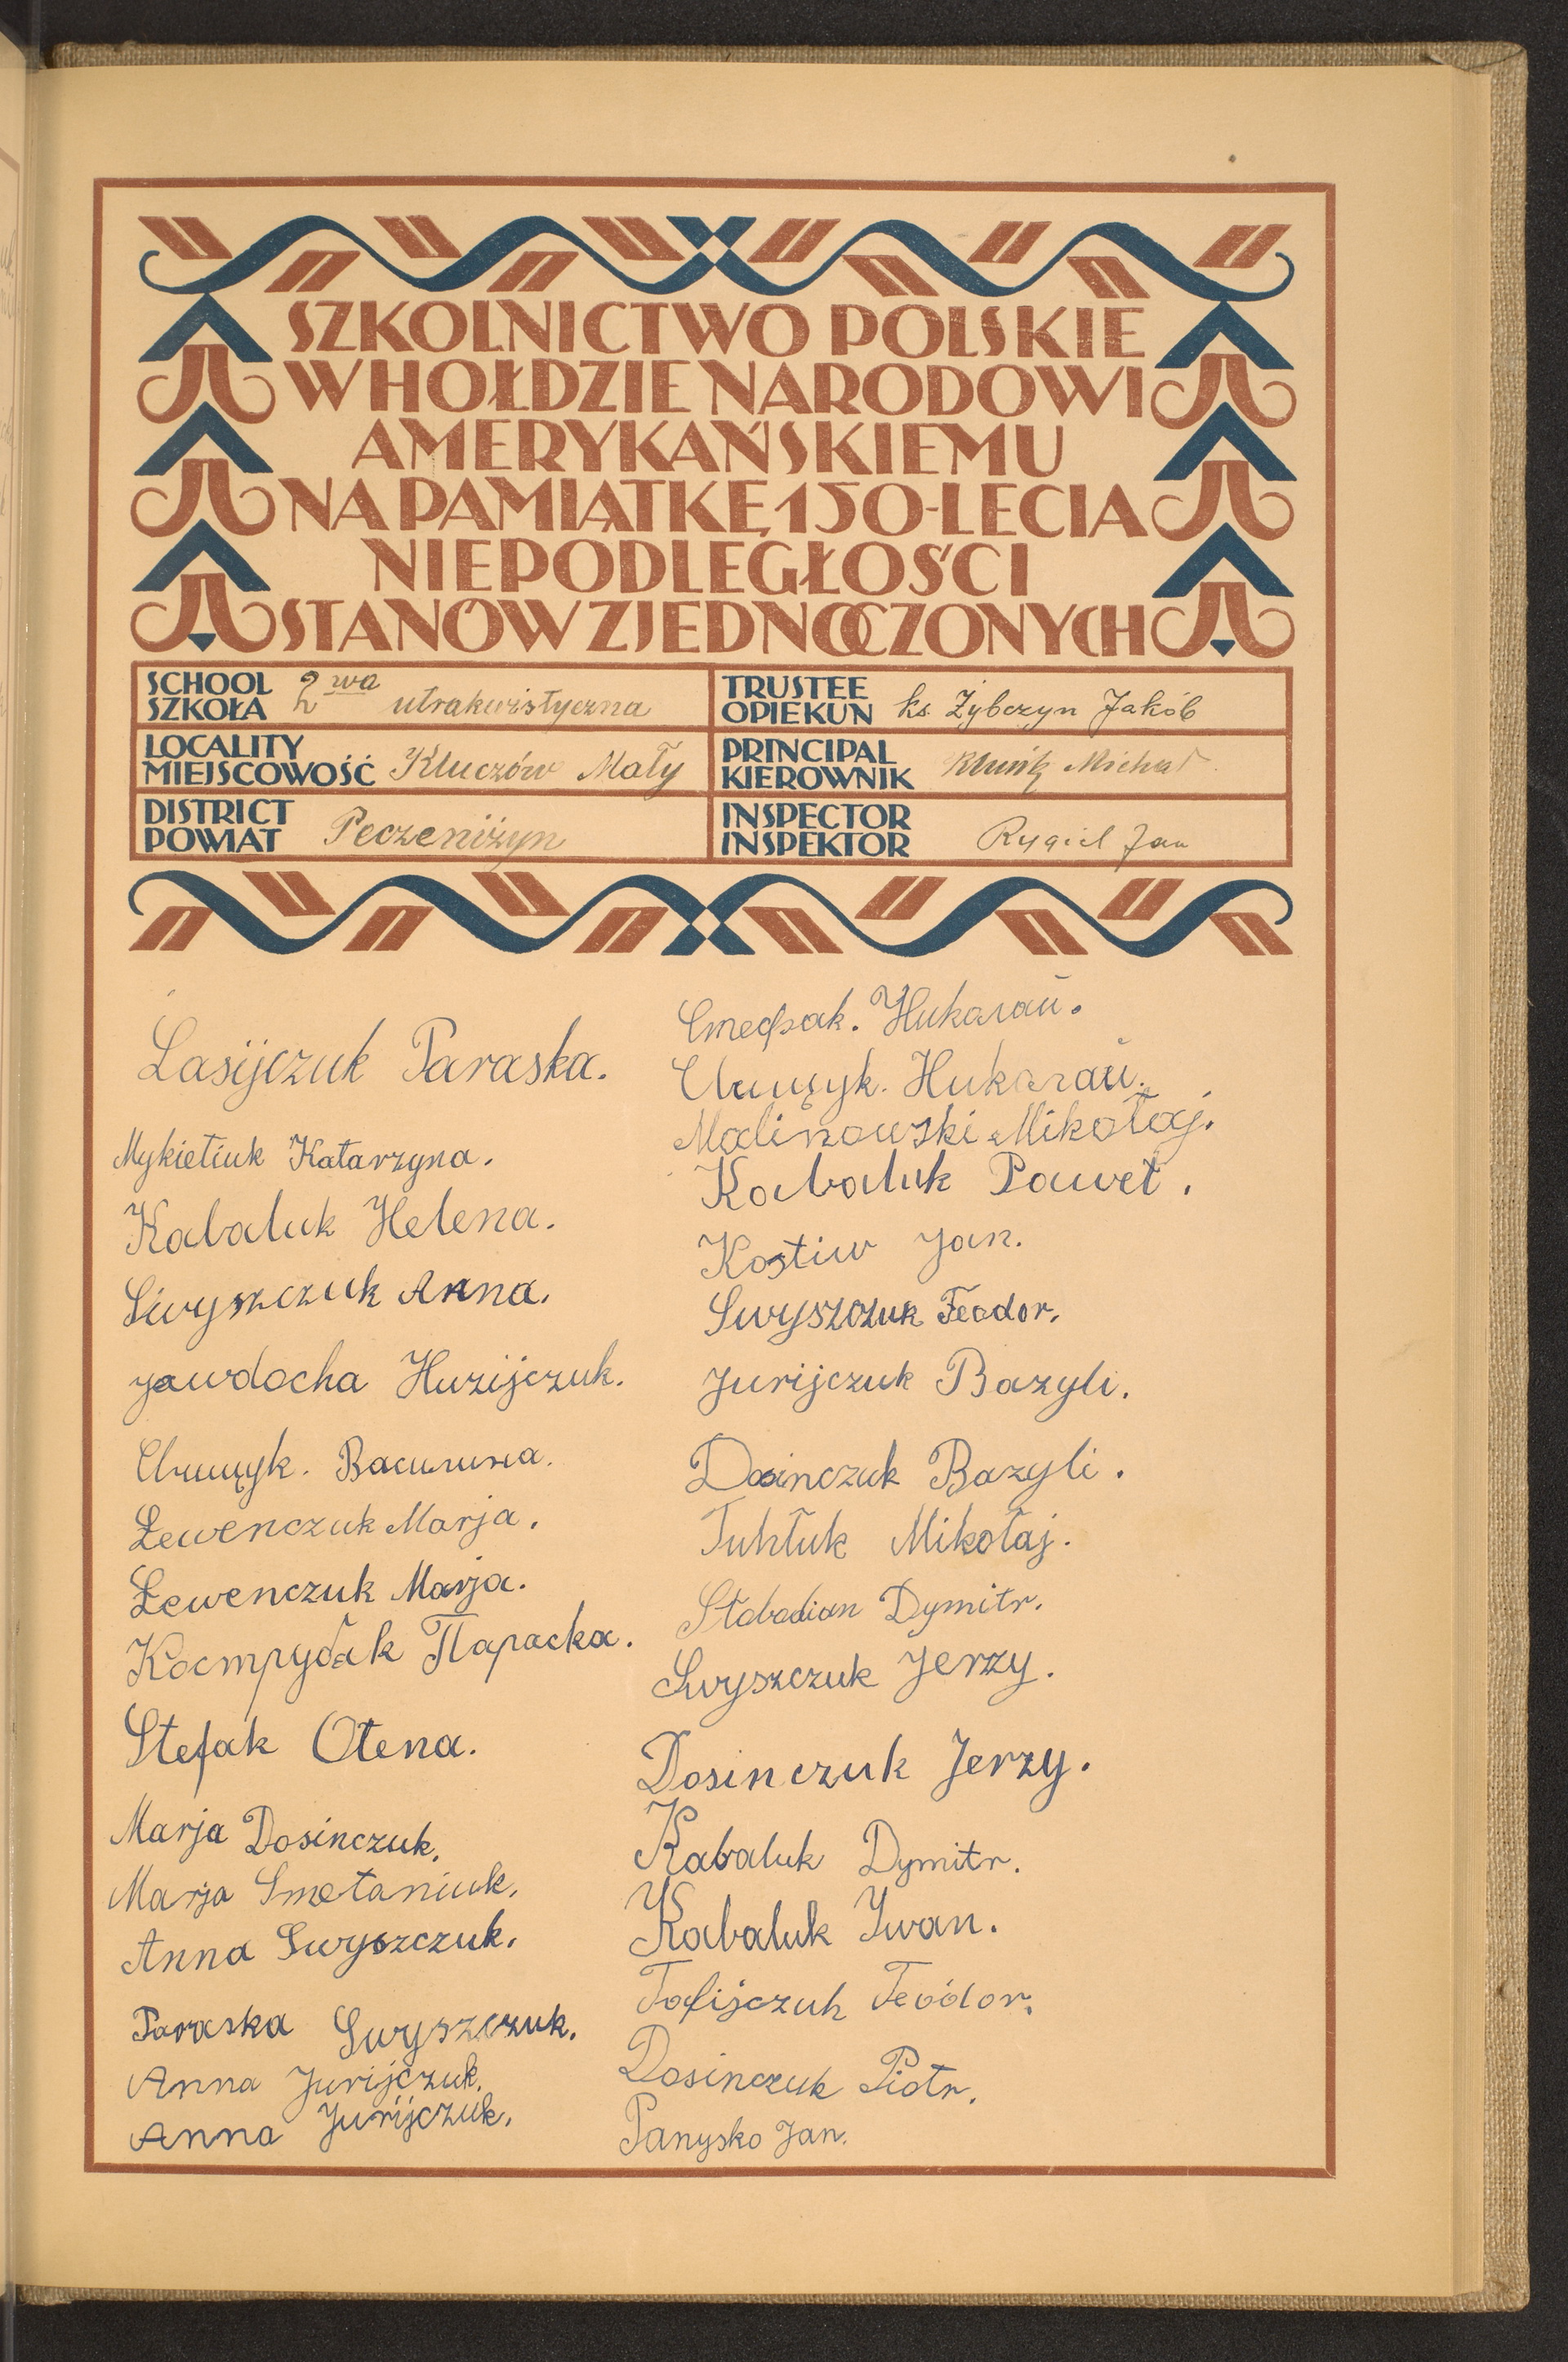 SZKOLNICTWO POLSKIE
W HOŁDZIE NARODOWI
AMERYKAŃSKIEMU
NA PAMIĄTKĘ 150-LECIA
NIEPODLEGŁOŚCI
STANÓW ZJEDNOCZONYCH
SCHOOL
SZKOŁA 2wa utrakwistyczna
LOCALITY
MIEJSCOWOŚĆ Kluczów Mały
DISTRICT
POWIAT Peczeniżyn
TRUSTEE
OPIEKUN ks. Żybczyn Jakób
PRINCIPAL
KIEROWNIK Michał
INSPECTOR
INSPEKTOR Rygiel Jan
Lasijczuk Paraska.
Mykietiuk Katarzyna.
Kabaluk Helena.
Swyszczuk Anna.
Jawdocha Huzijczuk.
Василина.
Łewenczuk Marja.
Łewenczuk Marja.
Кострубак Параска.
Stefak Ołena.
Marja Dosinczuk.
Marja Smetaniuk.
Anna Swyszczuk.
Paraska Swyszczuk.
Anna Jurijczuk.
Anna Jurijczuk.
Стефак. Николай.
Николай.
Malinowski Mikołaj.
Kabaluk Paweł.
Kostiw Jan.
Swyszczuk Feodor.
Jurijczuk Bazyli.
Dosinczuk Bazyli.
Tuhłuk Mikołaj.
Słabodian Dymitr.
Swyszczuk Jerzy.
Dosinczuk Jerzy.
Kabaluk Dymitr.
Kabaluk Iwan.
Tofijczuk Teódor.
Dosinczuk Piotr.
Panysko Jan.